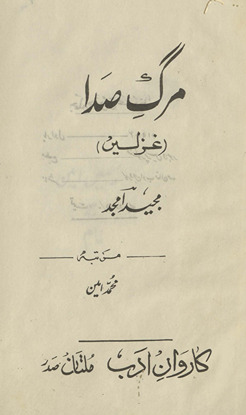 مرگِ صدا
(غزلیں)
مجید امجد
مرتبہ
محمد امین
کاروانِ ادب ملتان صدر